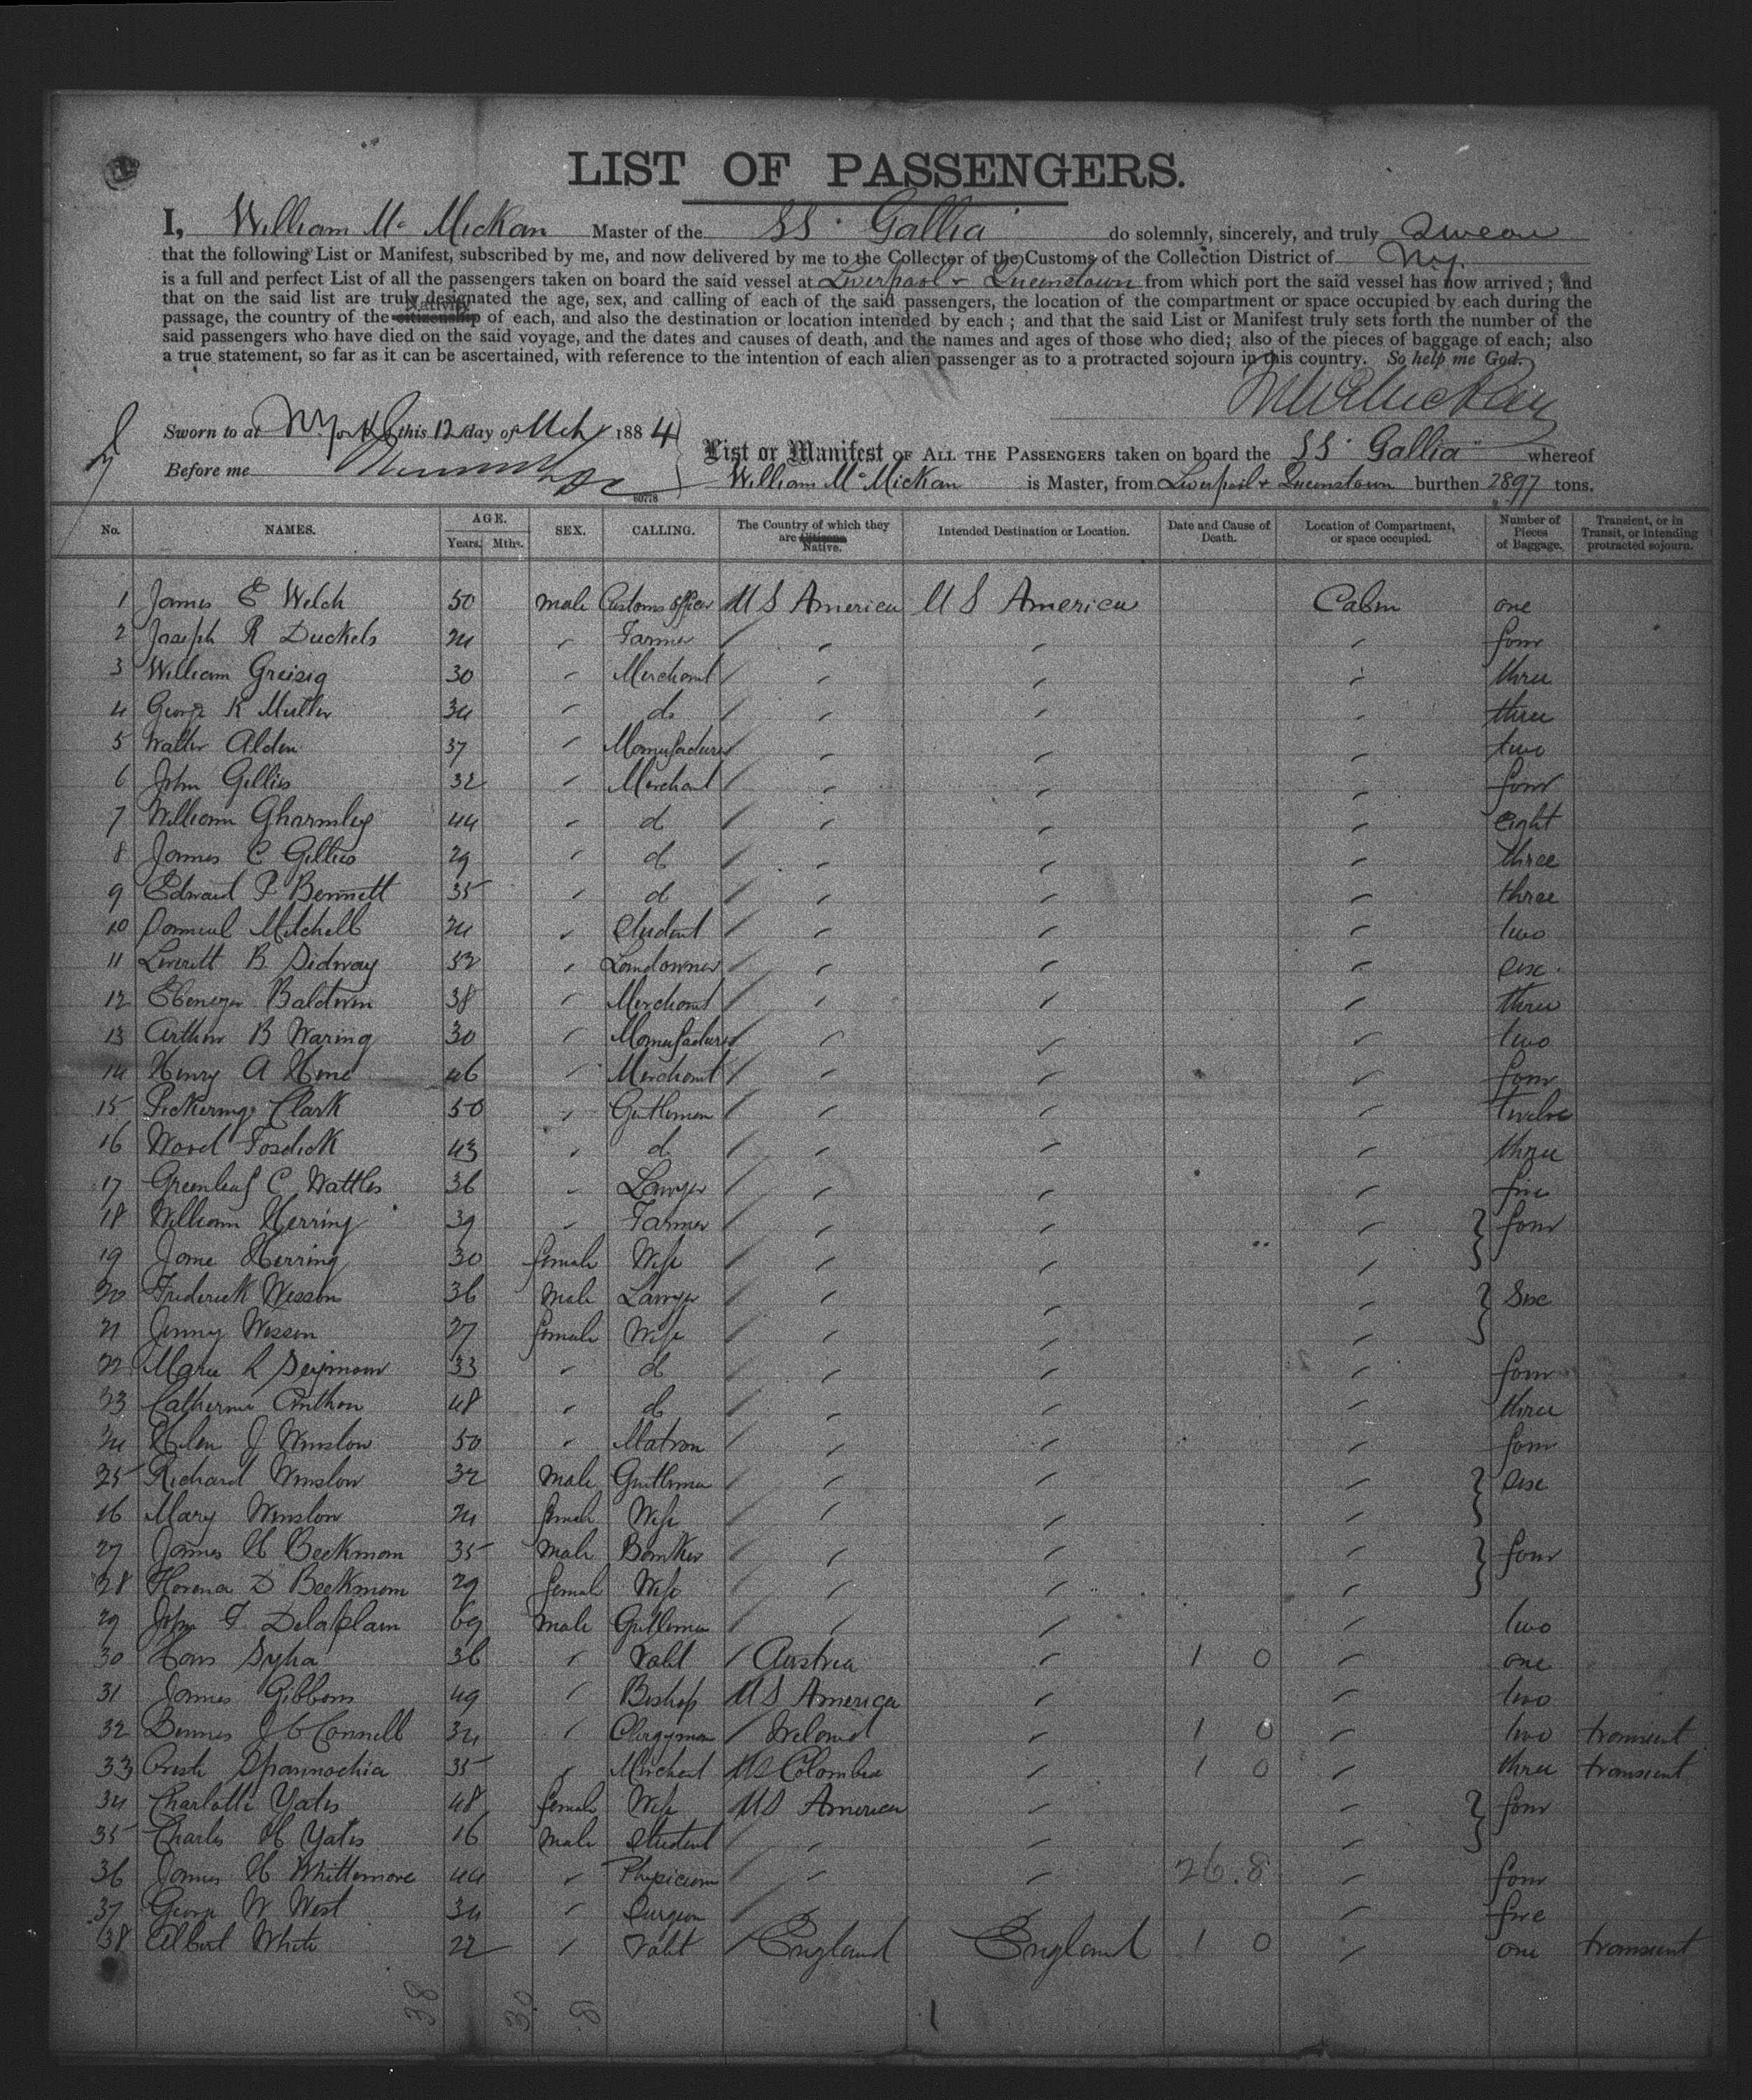 LIST OF PASSENGERS.
I, William Mc Mickan Master of the SS. Gallia do solemnly, sincerely, and truly Swear
that the following List or Manifest, subscribed by me, and now delivered by me to the Collector of the Customs of the Collection District of NY.
is a full and perfect List of all the passengers taken on board the said vessel at Liverpool + Queenstown from which port the said vessel has now arrived; and
that on the said list are truly designated the age, sex, and calling of each of the said passengers, the location of the compartment or space occupied by each during the
Native
passage, the country of the citizenship of each, and also the destination or location intended by each; and that the said List or Manifest truly sets forth the number of the
said passengers who have died on the said voyage, and the dates and causes of death, and the names and ages of those who died; also of the pieces of baggage of each; also
a true statement, so far as it can be ascertained, with reference to the intention of each alien passenger as to a protracted sojourn in this country. So help me God.
WMcMickan
Sworn to at NYork this 12 day of Mch 1884
List or Manifest OF ALL THE PASSENGERS taken on board the SS. Gallia whereof
Before me
William Mc Mickan is Master, from Liverpool + Queenstown burthen 2897 tons.
60778
No. NAMES. AGE. Years. Mths. SEX. CALLING. The Country of which they are Citizens Native. Intended Destination or Location. Date and Cause of Death. Location of Compartment, or space occupied. Number of Pieces of Baggage. Transient, or in Transit, or intending protracted sojourn.
1 James E Welch 50 male Customs officer U S America U S America Cabin one
2 Joseph R Duckels 24 " Farmer " " " four
3 William Greisig 30 " Merchant " " " three
4 George K Muller 34 " do " " " three
5 Walter Alden 37 " Manufacturer " " " two
6 John Gillies 32 " Merchant " " " four
7 William Gharmley 44 " d " " " eight
8 James C Gillies 29 " d " " " three
9 Edward P Bennett 35 " d " " " three
10 Mitchell 24 " Student " " " two
11 Leverett B Sidway 52 " Landowner " " " six
12 Ebenezer Baldwin 38 " Merchant " " " three
13 Arthur B Waring 30 " Manufacturer " " " two
14 Henry A 46 " Merchant " " " four
15 Pickering Clark 50 " Gentleman " " " twelve
16 Wood Fosdick 43 " d " " " three
17 Greenleaf C Wattles 36 " Lawyer " " " five
18 William Herring 39 " Farmer " " " four
19 Jane Herring 30 female Wife " " "
20 Frederick Wesson 36 male Lawyer " " " six
21 Jenny Wesson 27 female Wife " " "
22 Mary L Seymour 33 " d " " " four
23 Catherine Anthon 48 " d " " " three
24 Helen J Winslow 50 " Matron " " " four
25 Richard Winslow 32 male Gentleman " " " six
26 Mary Winslow 24 female Wife " " "
27 James H Beekman 35 male Banker " " " four
28 Florence D Beekman 29 female Wife " " "
29 John F Delaplain 69 male Gentleman " " " two
30 Hans 36 " Valet Austria " 1 0 " one
31 James Gibbons 49 " Bishop U S America " " two
32 J O'Connell 34 " Clergyman Ireland " 1 0 " two transient
33 Spannochia 35 " Merchant US Colombia " 1 0 " three transient
34 Charlotte Yates 48 female Wife US America " " four
35 Charles H Yates 16 male Student " " "
36 James H Whittemore 44 " Physician " " 26.8 " four
37 George W West 34 " Surgeon " " " five
38 Albert White 22 " Valet England England 1 0 " one transient
38 30 8 1